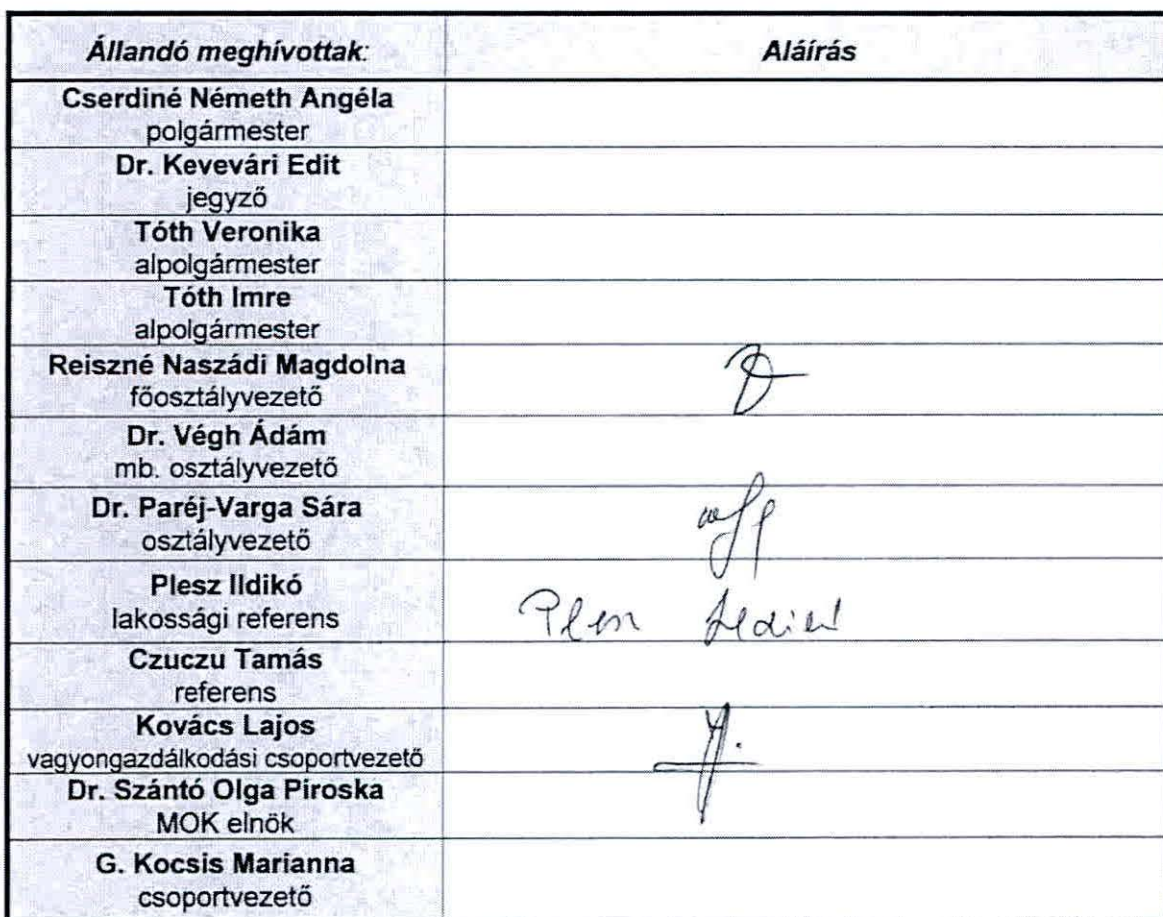 Állandó meghívottak: Aláírás
Cserdiné Németh Angéla
polgármester
Dr. Kevevári Edit
jegyző
Tóth Veronika
alpolgármester
Tóth Imre
alpolgármester
Reiszné Naszádi Magdolna
főosztályvezető
Dr. Végh Ádám
mb. osztályvezető
Dr. Paréj-Varga Sára
osztályvezető
Plesz Ildikó
lakossági referens
Plesz Ildikó
Czuczu Tamás
referens
Kovács Lajos
vagyongazdálkodási csoportvezető
Dr. Szántó Olga Piroska
MOK elnök
G. Kocsis Marianna
csoportvezető